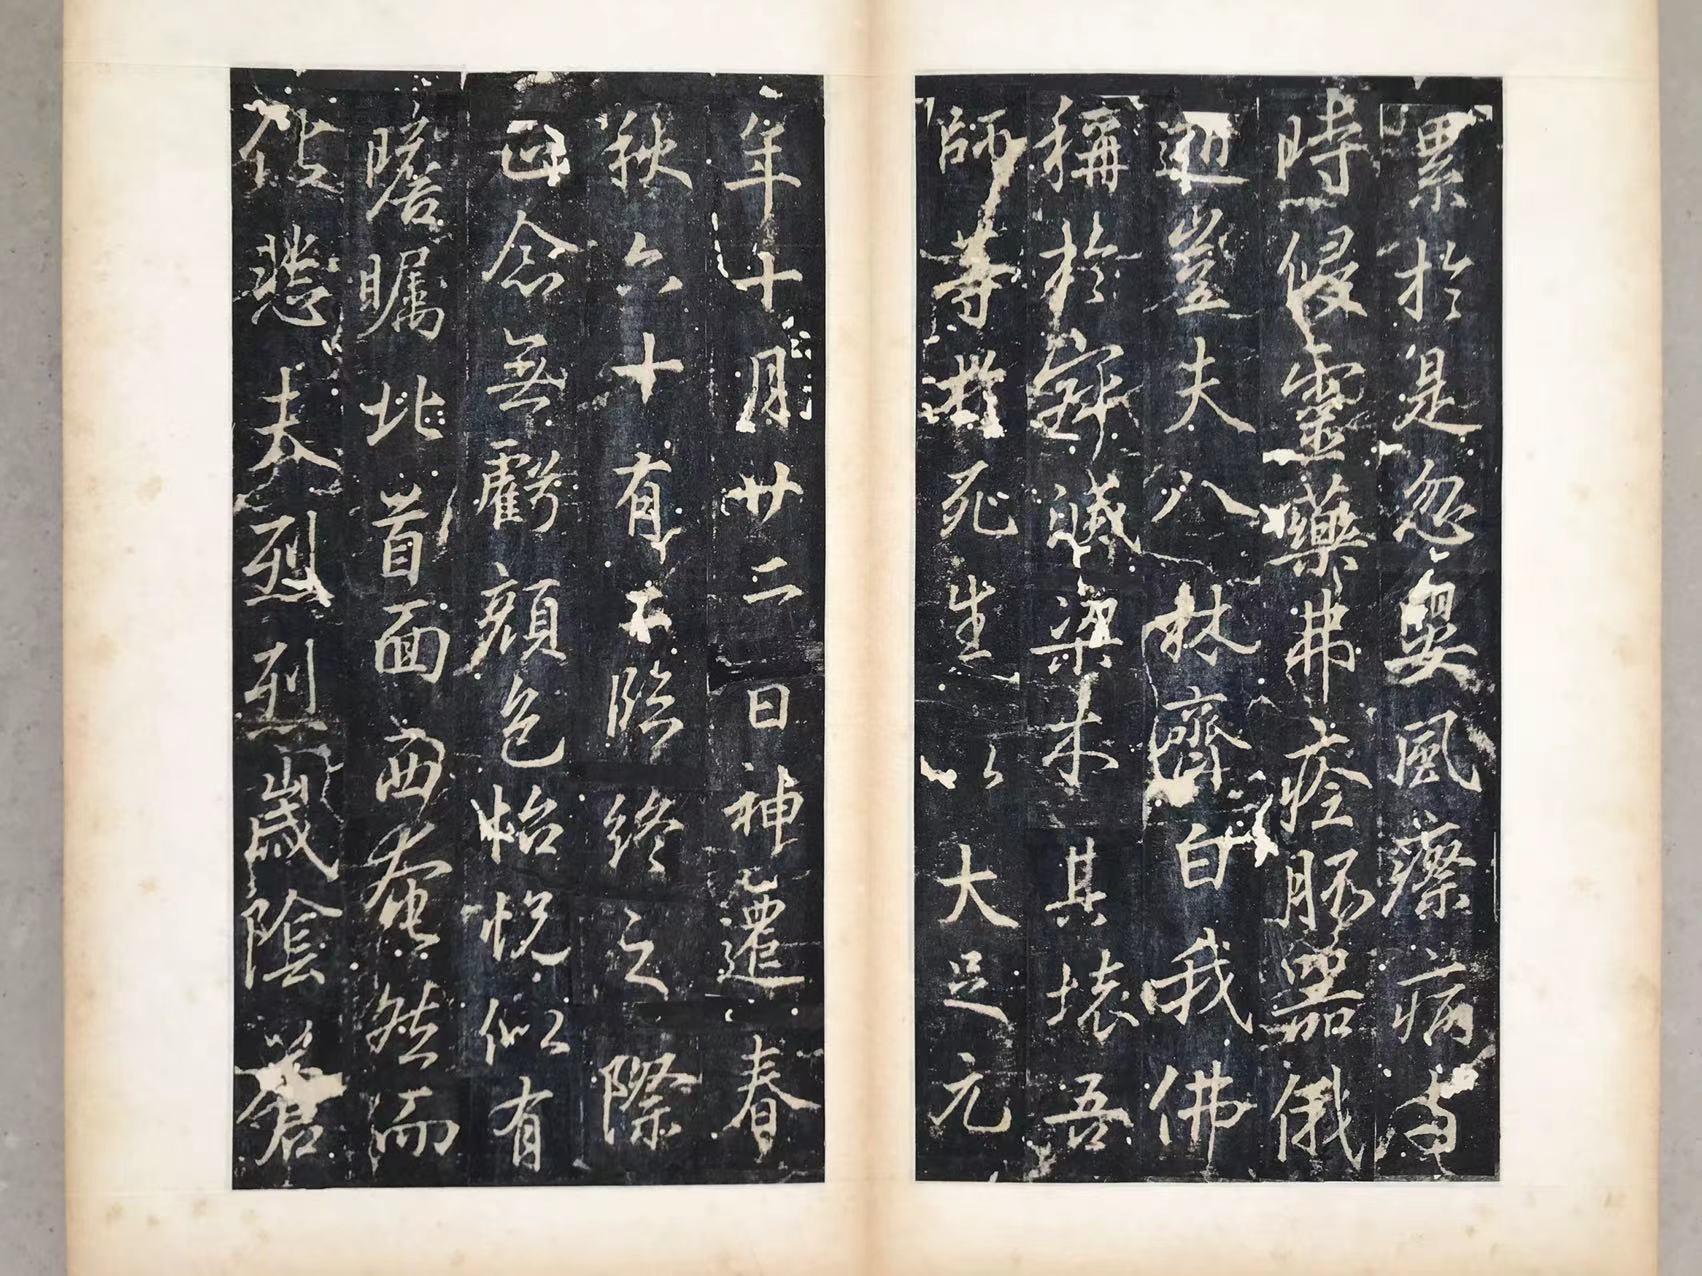 累於是忽嬰風瘵病与
時侵靈藥弗痊器俄
豈夫八林齊白我佛
稱於寂滅梁木其壞吾
師等死生以大足元
年十月廿二日神遷春
秋六十有二臨終之際
正念無虧顏色怡悅似有
瞻矚北首面西奄然而
悲夫烈烈歲陰蒼